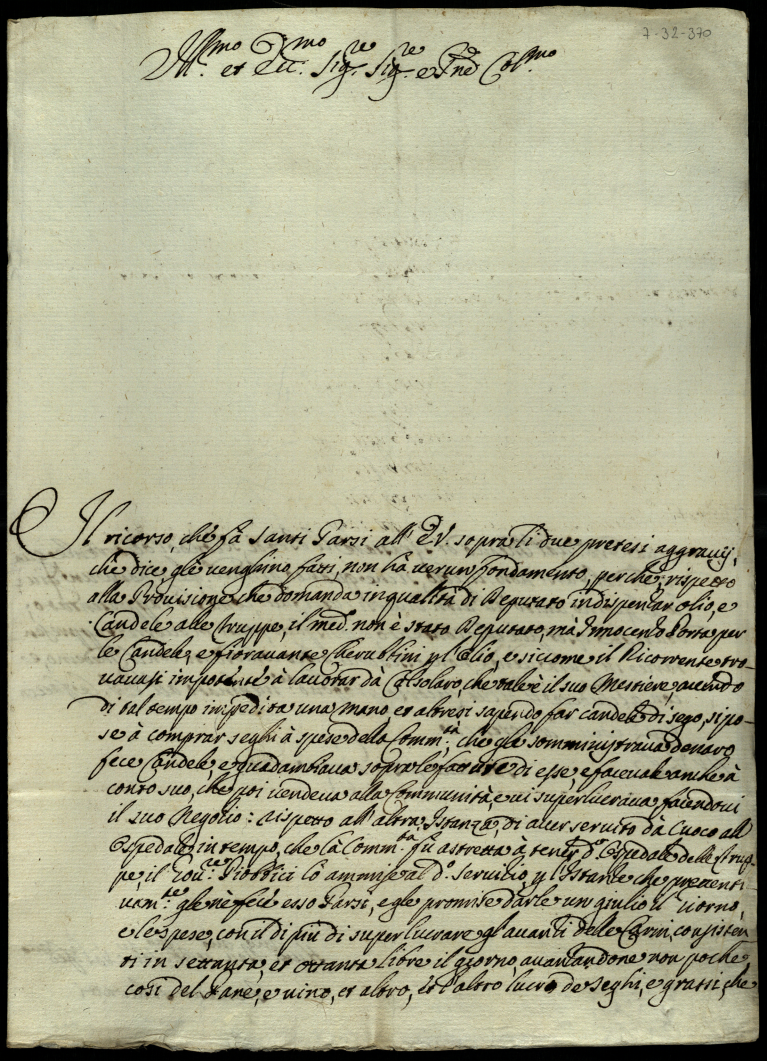 7-32-370
Ill.mo et Ecc.mo Sig.re Sig.re e Pne Col.mo
Il ricorso, che fà Santi Parsi all' E.V. sopra li due pretesi aggravij,
che dice, gl'è venghino fatti, non hà verun fondamento, perche, rispetto
alla Provisione, che domanda in qualità di Deputato in dispensar olio, e
Candele alle Truppe, il med. non è stato Deputato, mà Innocenzo Porta per
le Candele, e Fioravante Cherubini p l'Olio, e siccome il Ricorrente tro-
vavasi impotente à lavorar dà Calsolaro, che tale è il suo Mestiere, avendo
di tal tempo impedita una mano et altresì sapendo far candele di sego, si po-
se à comprar seghi à spese della Comm.tà, che gle somministrava denaro
fece Candele, e guadambiava sopra le fatture di esse, e faceva le anche à
conto suo, che poi vendeva alla Communità, e vi superlucrava facendovi
il suo Negozio: rispetto all' altra Istanza, di aver servito dà Cuoco all'
Ospedale in tempo, che la Comm.tà fù astretta à tener d.o Ospedale delle Trup-
pe, il Gov.re Piobbici lo ammise al d.o servizio, p l'Istanze che preventi-
vam.te gle nè fece esso Parsi, e gle promise darle un giulio il giorno,
e le spese, con il di più di superlucrare gl'avanzi delle Carni, consisten-
ti in settanta, et ottanta libre il giorno, avanzandone non poche,
così del Pane, e vino, et altro, et l'altro lucro de seghi, e grassi, che